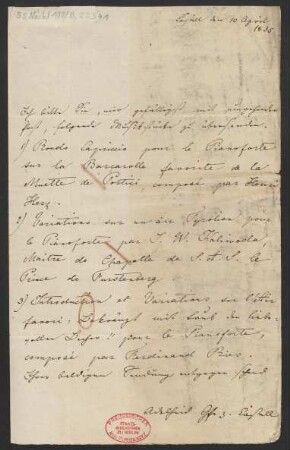 Castell den 10 April
1835.
Ich bitte Sie, mir gefälligst mit umgehender
Post, folgende Musikstücke zu übersenden.
1) Rondo Capriccio pour le Pianoforte
sur la Barcarolle favorite de la
Muette de Portici, composé par Henri
Herz.
2) Variations sur un air Tyrolien pour
le Pianoforte par J. W. Kaliwoda,
Maitre de Chapelle de S. A. S. le
Prince de Furstenberg
3) Introduction et Variations sur l'Air
favori: Bekränzt mit Laub den lieb-
vollen Becher" pour le Pianoforte,
composé par Ferdinand Ries.
Ihrer baldigen Sendung entgegen sehend
Adelheid Gfn z. Castell